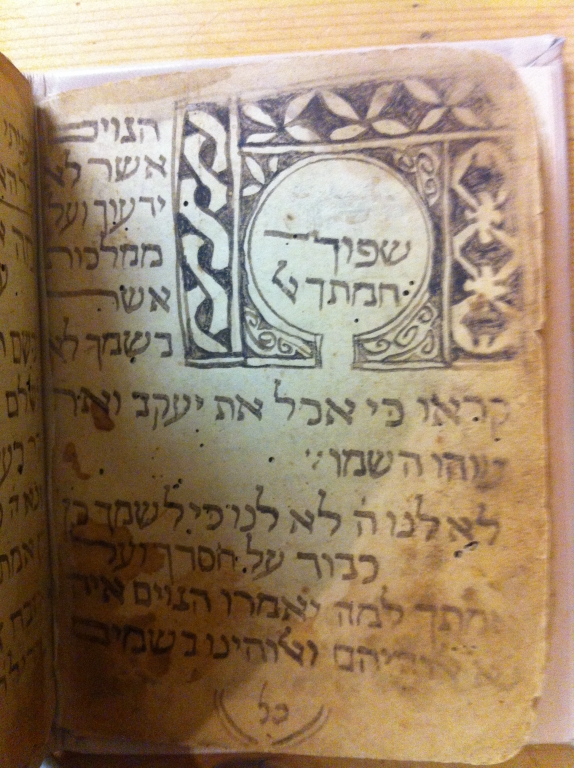 שפוך
חמתך על
הגוים
אשר לא
ידעוך ועל
ממלכות
אשר
בשמך לא
קראו כי אכל את יעקב ואת
נוהו השמו
לא לנו ה' לא לנו כי לשמך תן
כבוד על חסדך ועל
אמתך למה יאמרו הגוים איה
נא אלהיהם ואלהינו בשמים
כל